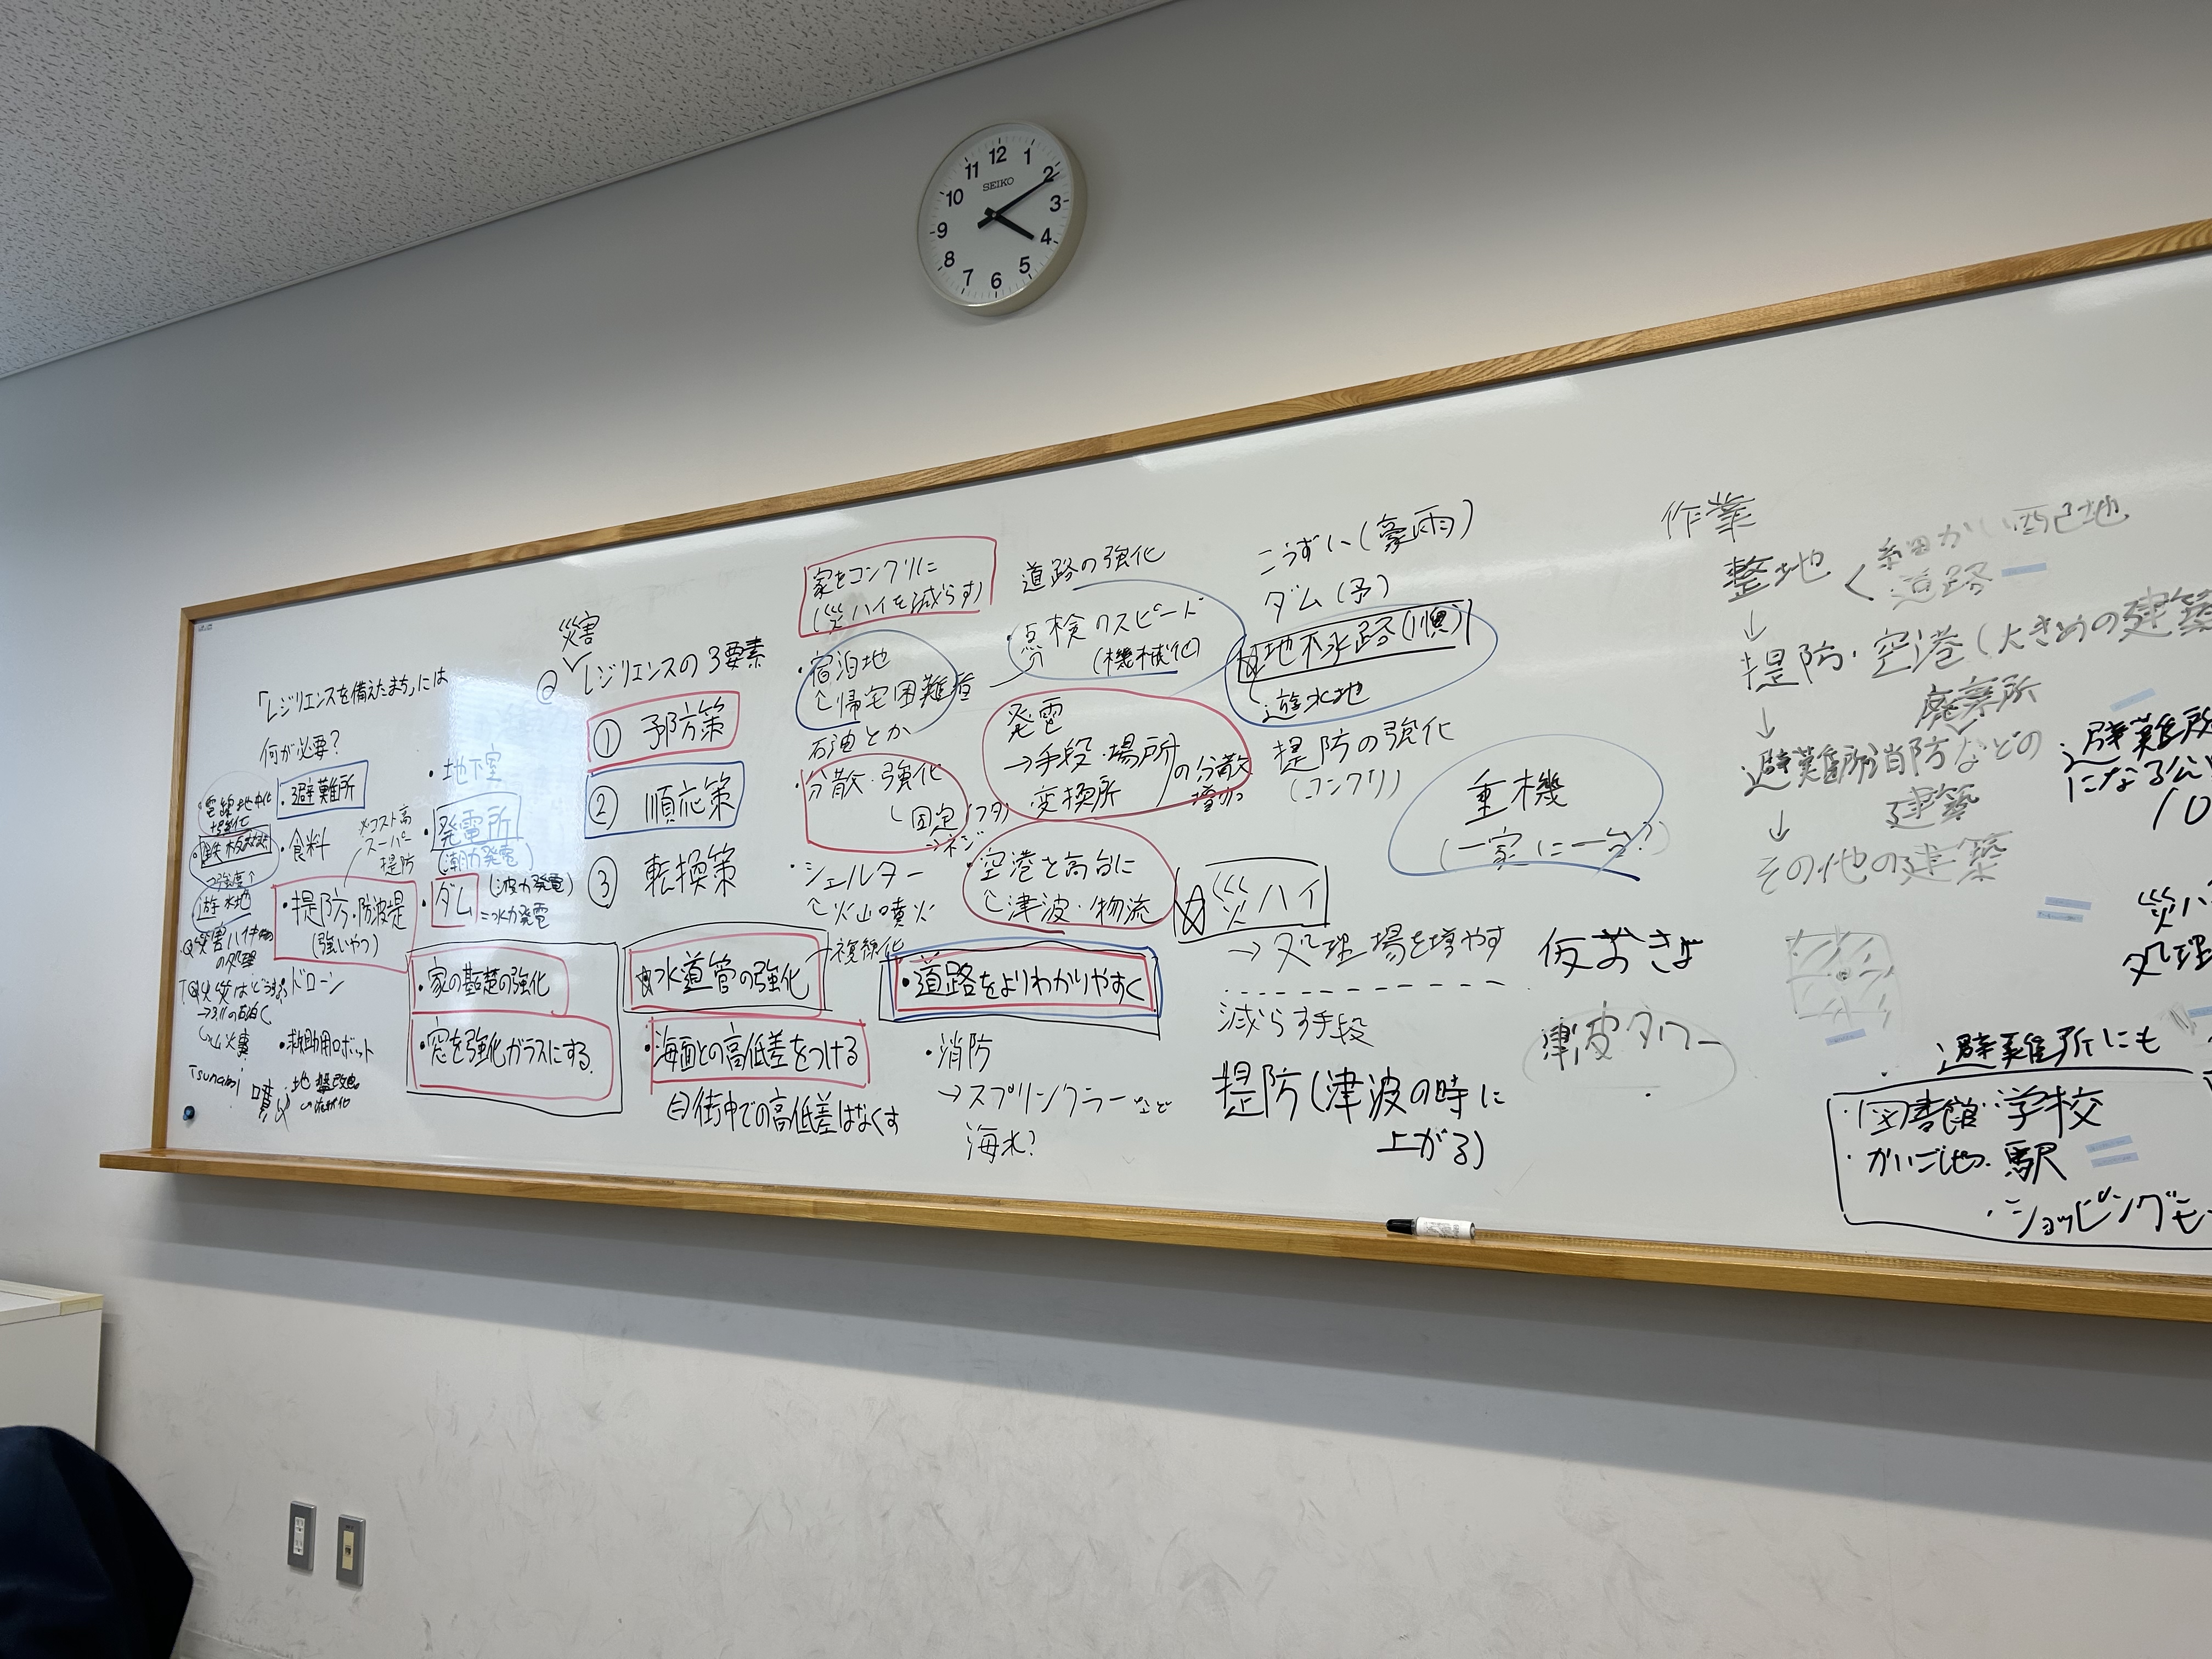 12
1
2
3
4
5
6
7
8
9
10
11
SEIKO
「レジリエンスを備えたまち」には
何が必要?
・避難所
・食料
※コスト高
スーパー
堤防
・堤防・防波堤
(強いやつ)
ドローン
・救助用ロボット
遊水地
の処理
→3.11の
Tsunami
・地下室
・発電所
(潮力発電)
・ダム
(波力発電)
=水力発電
・家の基礎の強化
・窓を強化ガラスにする.
災害
レジリエンスの3要素
① 予防策
② 順応策
③ 転換策
水道管の強化
→複線化
・海面との高低差をつける
街中での高低差はなくす
家をコンクリに
(災ハイを減らす)
・宿泊地
↑帰宅困難
石油とか
・分散・強化
(固定
・シェルター
↑火山噴火
・道路をよりわかりやすく
・消防
→スプリンクラーなど
海水?
道路の強化
・点検のスピード
(機械化)
発電
→手段・場所
変換所
の分散
増加
・空港を高台に
↑津波・物流
こうずい(豪雨)
ダム(予)
地下水路(順)
遊水地
堤防の強化
(コンクリ)
災ハイ
→処理場を増やす
減らす手段
堤防(津波の時に
上がる)
重機
(一家に一台?)
仮おきば
津波タワー
作業
整地
細かい配地
道路
↓
堤防・空港(大きめの建築
↓
廃棄所
避難所消防などの
建築
↓
その他の建築
避難所
になる公
10
災ハ
処理
避難所にも
・図書館・学校
・駅
・ショッピングモ